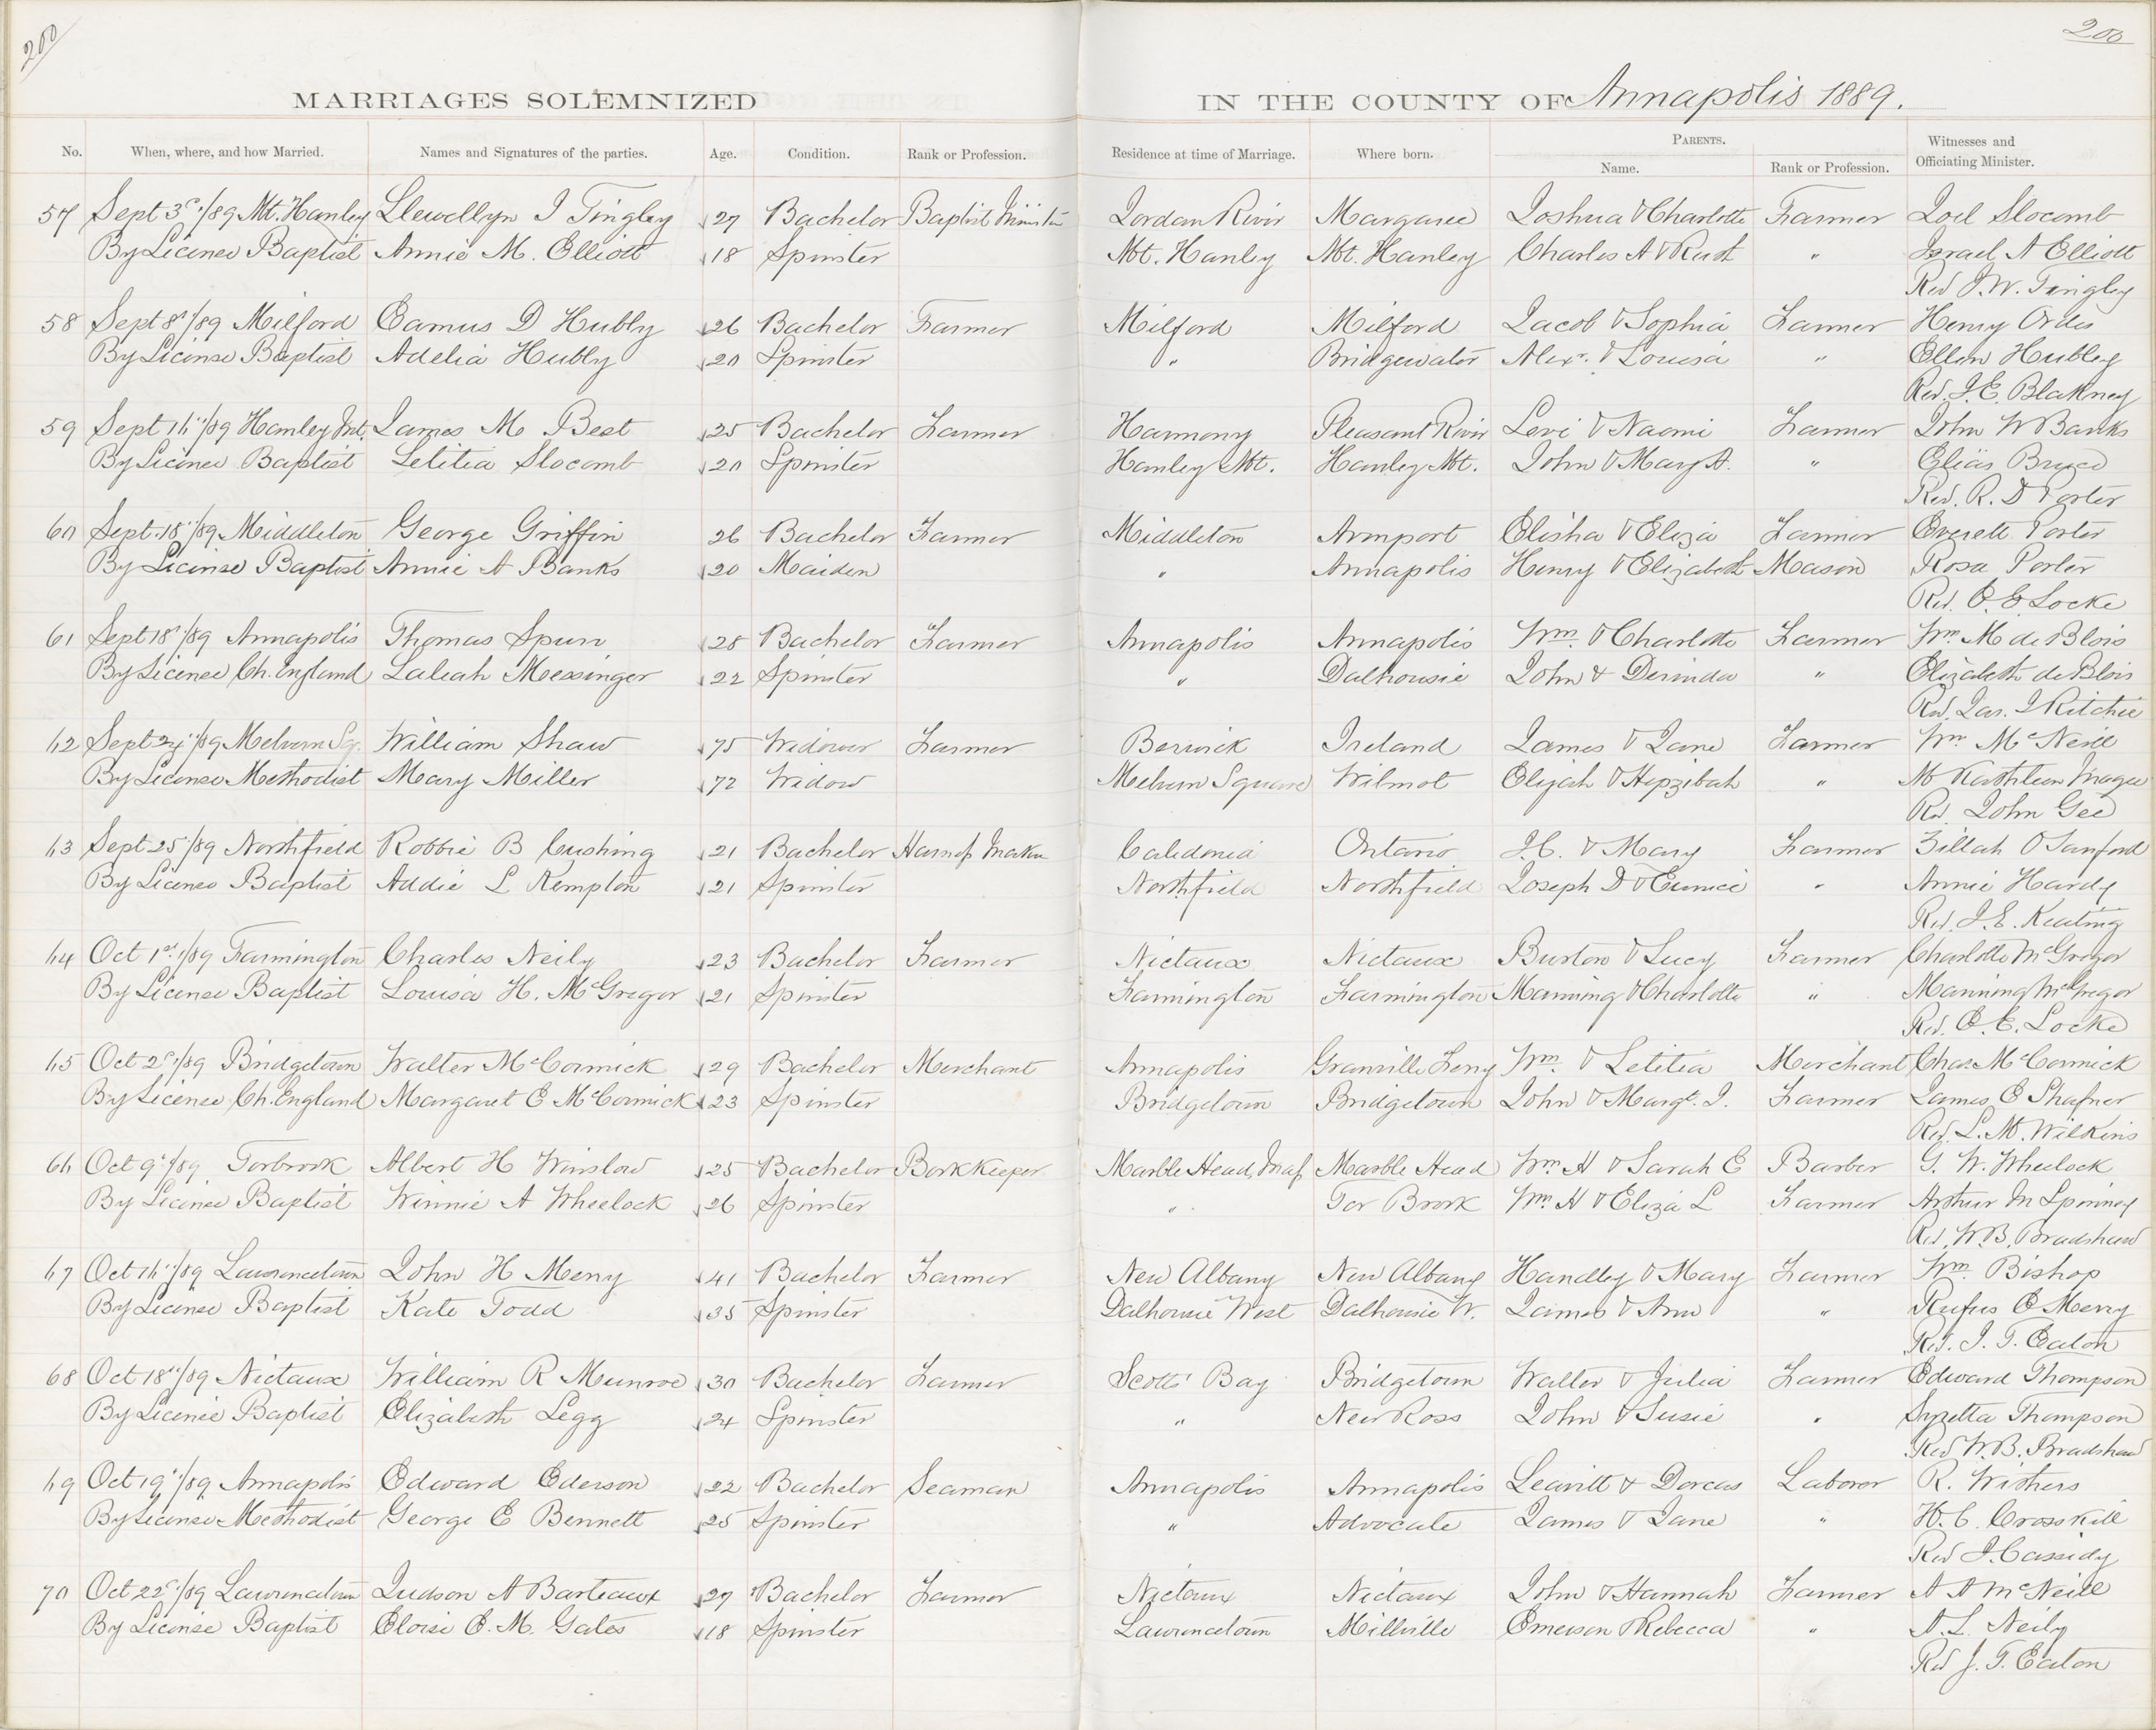 200
200
MARRIAGES SOLEMNIZED IN THE COUNTY OF Annapolis 1889.
No. When, where, and how Married. Names and Signatures of the parties. Age. Condition. Rank or Profession. Residence at time of Marriage. Where born. PARENTS. Name. Rank or Profession. Witnesses and Officiating Minister.
57 Sept 3d/89 Mt. Hanley Llewellyn J Tingley 27 Bachelor Baptist Minister Jordan River Margaree Joshua & Charlotte Farmer Joel Slocomb
By License Baptist Annie M. Elliott 18 Spinster Mt. Hanley Mt. Hanley Charles A & " Israel A Elliott
Rev J. W. Tingley
58 Sept 8"/89 Milford Eamus D Hubly 26 Bachelor Farmer Milford Milford Jacob & Sophia Farmer Henry
By License Baptist Adelia Hubly 20 Spinster " Bridgewater Alexr. & Louisa " Ellen Hubley
Rev. J. E. Blakney
59 Sept /89 Hanley Mt. James M Best 25 Bachelor Farmer Harmony Pleasant River Levi & Naomi Farmer John W Banks
By License Baptist Letitia Slocomb 20 Spinster Hanley Mt. Hanley Mt. John & Mary A. " Elias Bruce
Rev. R. D Porter
60 Sept. 18"/89 Middleton George Griffin 26 Bachelor Farmer Middleton Armport Elisha & Eliza Farmer Everett Porter
By License Baptist Annie A Banks 20 Maiden " Annapolis Henry & Elizabeth Mason Rosa Porter
Rev. E. E Locke
61 Sept 18"/89 Annapolis Thomas Spurr 28 Bachelor Farmer Annapolis Annapolis Wm. & Charlotte Farmer Wm M de Blois
By License Ch. England Laleah Messinger 22 Spinster " Dalhousie John & Derinda " Elizabeth de Blois
Rev. Jas. J Ritchie
62 Sept 24"/89 Melvern Sq. William Shaw 75 Widower Farmer Berwick Ireland James & Jane Farmer Wm McNeill
By License Methodist Mary Miller 72 Widow Melvern Square Wilmot Elijah & Hepzibah " M Kathleen Magee
Rev. John Gee
63 Sept 25"/89 Northfield Robbie B Cushing 21 Bachelor Harness Maker Caledonia Ontario J. C. & Mary Farmer Zillah O Sanford
By License Baptist Addie L Kempton 21 Spinster Northfield Northfield Joseph D & Eunice " Annie Hardy
Rev. J. E. Keating
64 Oct 1st/89 Farmington Charles Neily 23 Bachelor Farmer Nictaux Nictaux Burton & Lucy Farmer Charlotte McGregor
By License Baptist Louisa H. McGregor 21 Spinster Farmington Farmington Manning & Charlotte " Manning McGregor
Rev. E. E. Locke
65 Oct 2d/89 Bridgetown Walter McCormick 29 Bachelor Merchant Annapolis Granville Ferry Wm. & Letitia Merchant Chas. McCormick
By License Ch. England Margaret E McCormick 23 Spinster Bridgetown Bridgetown John & Margt. J. Farmer James E Shafner
Rev. L. M. Wilkins
66 Oct 9"/89 Torbrook Albert H Winslow 25 Bachelor Book Keeper Marble Head, Mass Marble Head Wm H & Sarah E Barber G. W. Wheelock
By License Baptist Winnie A Wheelock 26 Spinster " Tor Brook Wm. H & Eliza L Farmer Arthur M Spinney
Rev. W. B. Bradshaw
67 Oct 16"/89 Lawrencetown John H Merry 41 Bachelor Farmer New Albany New Albany Handley & Mary Farmer Wm. Bishop
By License Baptist Kate Todd 35 Spinster Dalhousie West Dalhousie W. James & Ann " Rufus E Merry
Rev. J. T. Eaton
68 Oct 18"/89 Nictaux William R Munroe 30 Bachelor Farmer Scotts' Bay Bridgetown Walter & Julia Farmer Edward Thompson
By License Baptist Elizabeth Legg 24 Spinster " New Ross John & Susie " Thompson
Rev W. B. Bradshaw
69 Oct 19"/89 Annapolis Edward Ederson 22 Bachelor Seaman Annapolis Annapolis Leavitt & Dorcas Laborer R. Withers
By License Methodist George E Bennett 25 Spinster " Advocate James & Jane " H. C. Crosskill
Rev J. Cassidy
70 Oct 22d/89 Lawrencetown Judson A Barteaux 27 Bachelor Farmer Nictaux Nictaux John & Hannah Farmer A A McNeill
By License Baptist Eloise E. M. Gates 18 Spinster Lawrencetown Millville Emerson & Rebecca " A. L. Neily
Rev J. T. Eaton